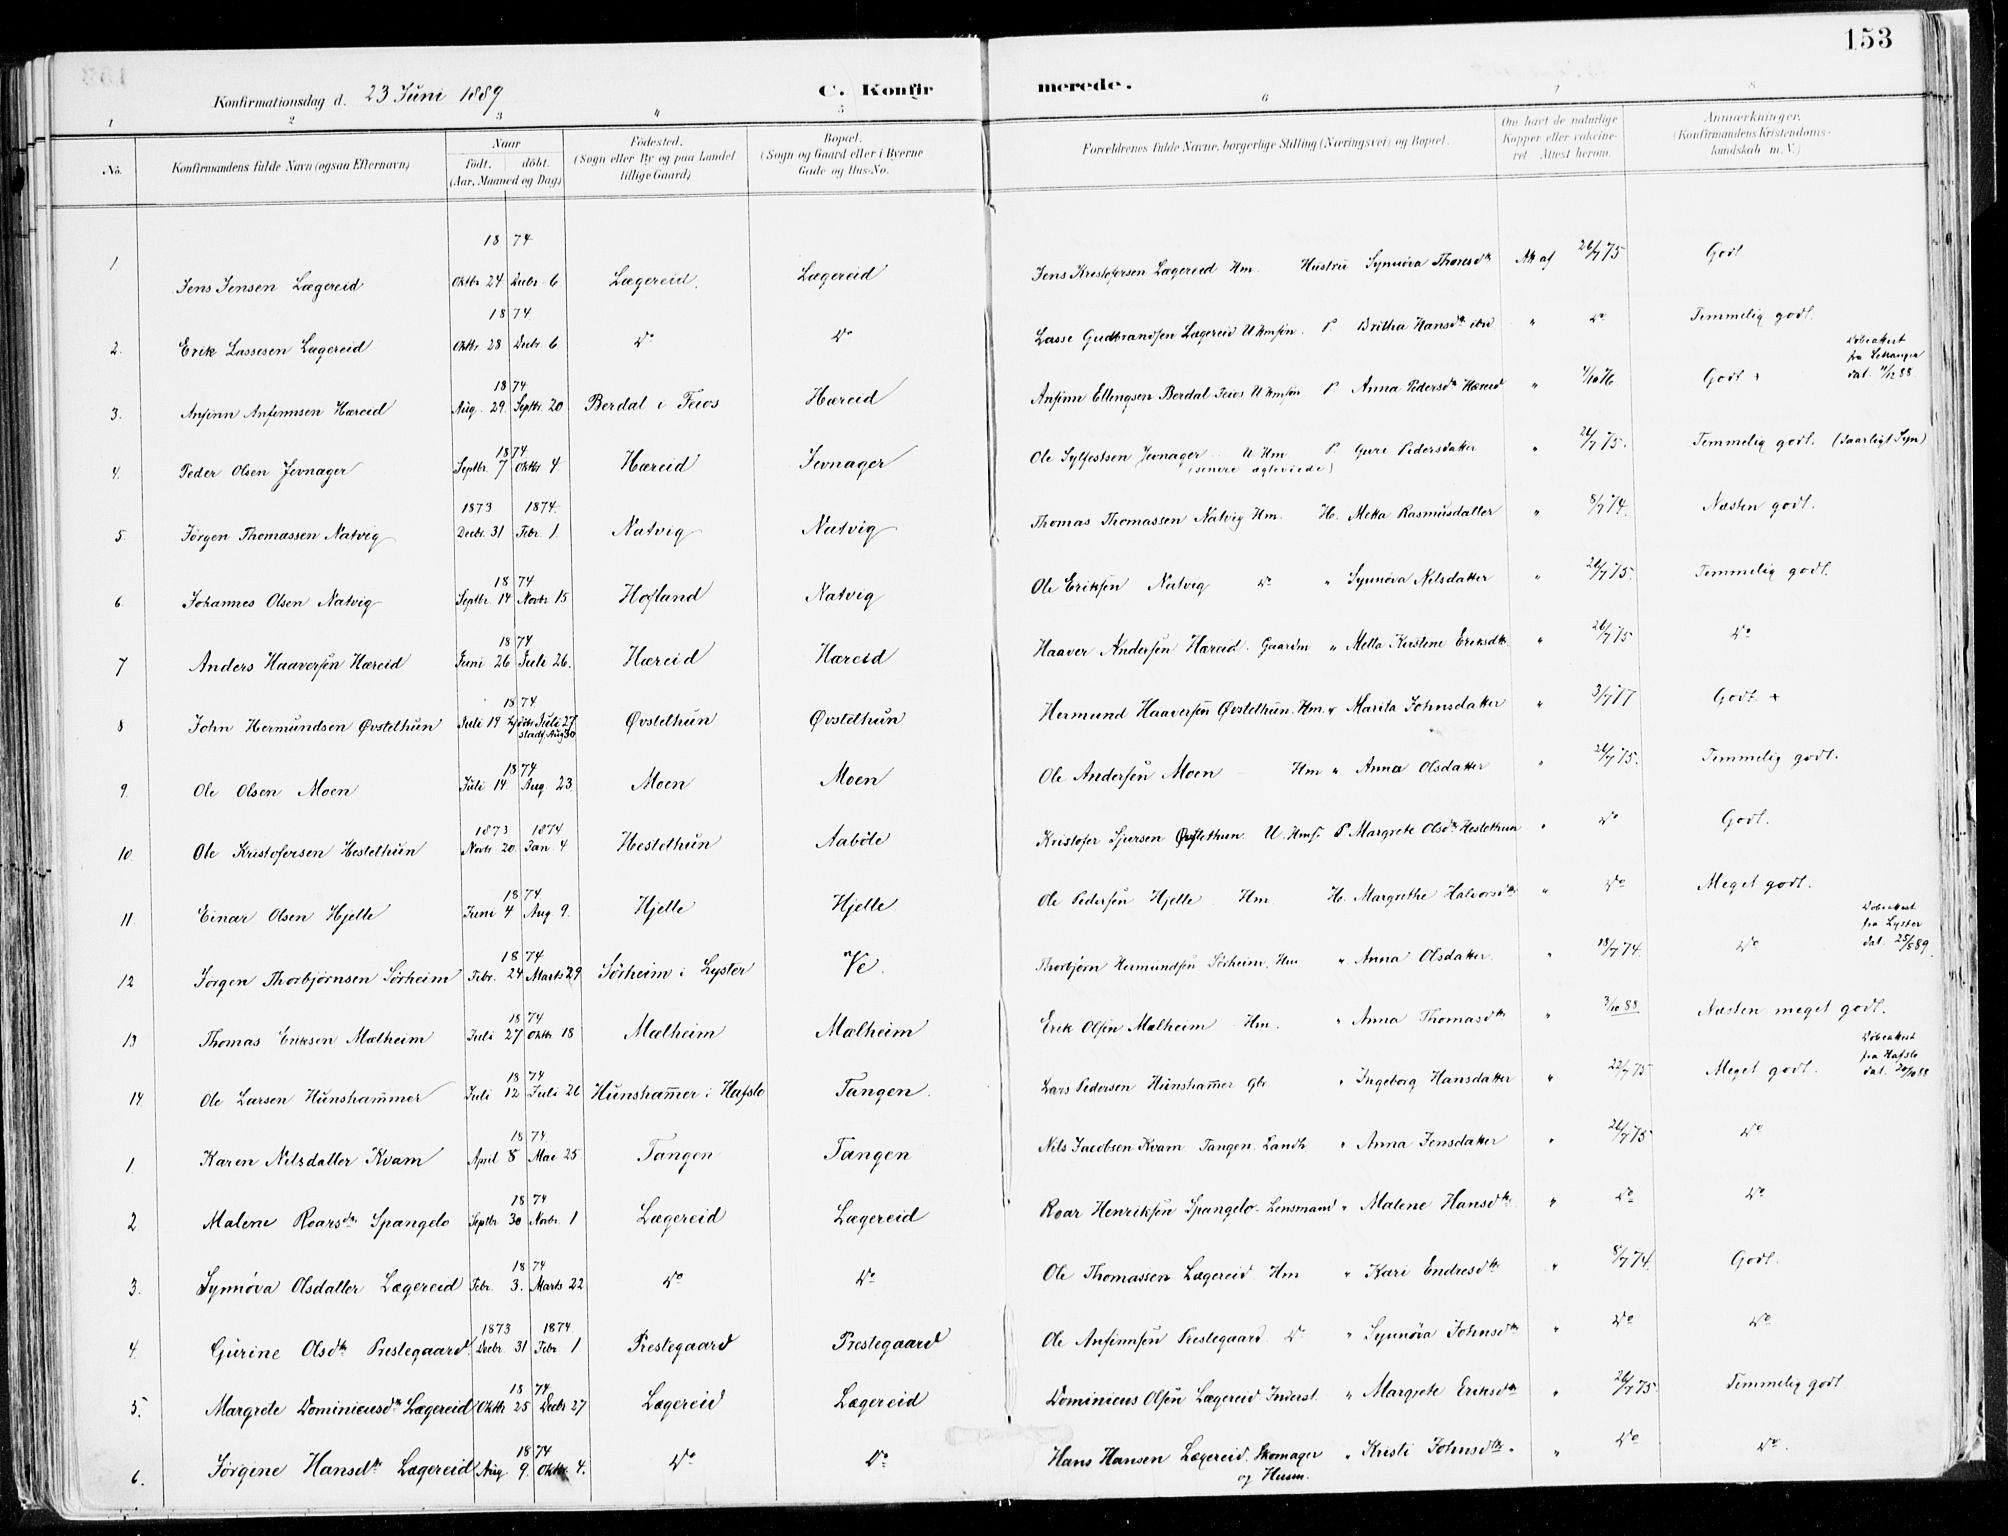 153
Konfirmationsdag d. 23 Juni 1889 C. Konfir merede.
1 2 3 4 5 6 7 8
No. Konfirmandens fulde Navn (ogsaa Efternavn) Naar født. døbt. (Aar, Maaned og Dag) Fødested. (Sogn eller By og paa Landet tillige Gaard) Bopæl. (Sogn og Gaard eller i Byerne Gade og Hus-No. Forældrenes fulde Navne, borgerlige Stilling (Næringsvei) og Bopæl. Om havt de naturlige Kopper eller vakcineret. Attest herom. Anmærkninger. (Konfirmandens Kristendomskundskab m. V.)
1874
1 Jens Jensen Lægereid Oktbr 24 Decbr 6 Lægereid. Lægereid Jens Kristofersen Lægereid Hm. Hustru Synnøva Thoresdtr Att af 26/7 75 Godt
1874
2. Erik Lassesen Lægereid Oktbr 28 Decbr. 6 Do Do Lasse Gudbrandsen Lægereid Ukmsøn. P. Britha Hansdtr ibid " Do Temmelig godt.
1874
3. Anfinn Anfinnsen Hæreid Aug. 29. Septbr. 20 Berdal i Feios Hæreid Anfinn Ellingsen Berdal Feios Ukmsøn P Anna Pedersdtr Hæreid " Godt Døbeattest fra Leikanger dat. 11/12 88.
1874
4. Peder Olsen Jevnager Septbr. 7 Oktbr. 4 Hæreid Jevnager Ole Sylfestsen Jevnager U. Hm. P Guri Pedersdatter (senere ægteviede) " 26/7 75. Temmelig godt. (daarligt Syn)
1873 1874
5. Jörgen Thomassen Natvig Decbr. 31 Febr. 1. Natvig Natvig Thomas Thomassen Natvig Hm. H. Metta Rasmusdatter " 8/7 74. Næsten godt.
1874
6. Johannes Olsen Natvig Septbr. 14 Novbr 15 Hofland Natvig Ole Eriksen Natvig Do " Synnøva Nilsdatter " 26/7 75. Temmelig godt.
1874
7 Anders Haaversen Hæreid Juni 26 Juli 26. Hæreid Hæreid Haaver Andersen Hæreid. Gaardm " Metta Kirstine Eriksdtr. " 26/7 75 Do
1874
8 John Hermundsen Øvstethun Juli 19 hjdbt Juli 27 stadf. Aug 30 Øvstethun Øvstethun Hermund Haaversen Øvstethun. Hm. " Marita Johnsdatter " 3/7 77 Godt
1874
9. Ole Olsen Moen Juli 14 Aug. 23 Moen Moen Ole Andersen Moen Hm " Anna Olsdatter " 26/7 75. Temmelig godt.
1873 1874
10. Ole Kristofersen Hestethun Novbr 20. Jan. 4 Hestethun Aabøle Kristofer Sjursen Øvstethun. U. Hmf. P. Margrete Olsdtr Hestethun " Do Godt.
1874
11. Einar Olsen Hjelle Juni 4 Aug. 9. Hjelle Hjelle Ole Pedersen Hjelle Hm. H. Margrethe Halvorsdtr " Do Meget godt.
1874
12 Jørgen Thorbjørnsen Sørheim Febr. 24 Marts 29 Sørheim i Lyster Ve. Thorbjørn Hermundsen Sørheim. Hm " Anna Olsdatter. " 18/7 74. Do Døbeattest fra Lyster dat. 25/5 89.
1874
13 Thomas Eriksen Mælheim Juli 27 Oktbr 18 Mælheim Mælheim Erik Olsen Mælheim Hm. " Anna Thomasdtr " 3/10 88 Næsten meget godt.
1874
14. Ole Larsen Hunshammer Juli 12 Juli 26 Hunshamer i Hafslo Tangen. Lars Pedersen Hunshamer gbr " Ingeborg Hansdatter " 22/7 75 Meget godt. Døbeattest fra Hafslo dat. 20/10 88
1874
1. Karen Nilsdatter Kvam April 8 Mai 25 Tangen Tangen Nils Jacobsen Kvam Tangen. Landh " Anna Jensdatter " 26/7 75 Do
1874
2 Malene Roarsdtr Spangelo Septbr. 30 Novbr. 1 Lægereid Lægereid Roar Henriksen Spangelo. Lensmand " Malene Hansdtr. " Do Do
1874
3. Synnøva Olsdatter Lægereid Febr. 3. Marts 22 Do Do Ole Thomassen Lægereid Hm " Kari Endresdtr " 8/7 74. Godt.
1873 1874
4. Gurine Olsdtr Prestegaard. Decbr. 31 Febr. 1 Prestegaard Prestegaard Ole Anfinnsen Prestegaard. Do " Synnøva Johnsdtr " Do Do
1874
5. Margrete Dominicusdtr Lægereid Oktbr 25 Decbr 27 Lægereid Lægereid Dominicus Olsen Lægereid Inderst " Margrete Eriksdtr " 26/7 75. Temmelig godt
1874
6. Jørgine Hansdtr Lægereid Aug. 9. Oktbr. 4. Do Do Hans Hansen Lægereid. Skomager og Husm. " Kristi Johnsdtr. " Do Do.